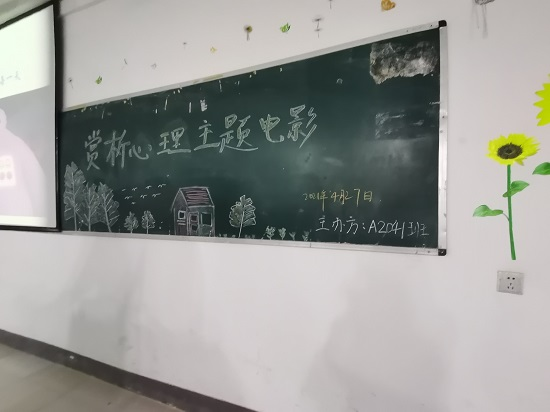 赏析心理主题电影
2021年4月27日
主办方：A2041班